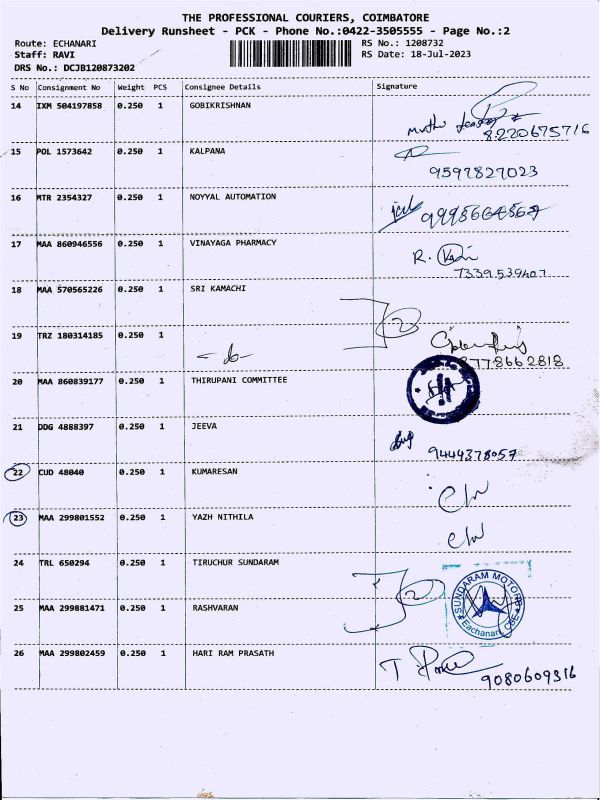 THE PROFESSIONAL COURIERS, COIMBATORE
Delivery Runsheet - PCK - Phone No.:0422-3505555 - Page No.:2
Route: ECHANARI
RS No.: 1208732
Staff: RAVI
RS Date: 18-Jul-2023
DRS No.: DCJB120873202
S No Consignment No Weight PCS Consignee Details Signature
14 IXM 504197858 0.250 1 GOBIKRISHNAN
8220675716
15 POL 1573642 0.250 1 KALPANA
9597827023
16 MTR 2354327 0.250 1 NOYYAL AUTOMATION
17 MAA 860946556 0.250 1 VINAYAGA PHARMACY
R.
7339539407
18 MAA 570565226 0.250 1 SRI KAMACHI
2
19 TRZ 180314185 0.250 1 -do-
8778662818
20 MAA 860839177 0.250 1 THIRUPANI COMMITTEE
21 DDG 4888397 0.250 1 JEEVA
9444378057
22 CUD 48040 0.250 1 KUMARESAN
23 MAA 299801552 0.250 1 YAZH NITHILA
24 TRL 650294 0.250 1 TIRUCHUR SUNDARAM
2
SUNDARAM MOTORS
Eachanari, CBE
25 MAA 299881471 0.250 1 RASHVARAN
26 MAA 299802459 0.250 1 HARI RAM PRASATH
9080609316